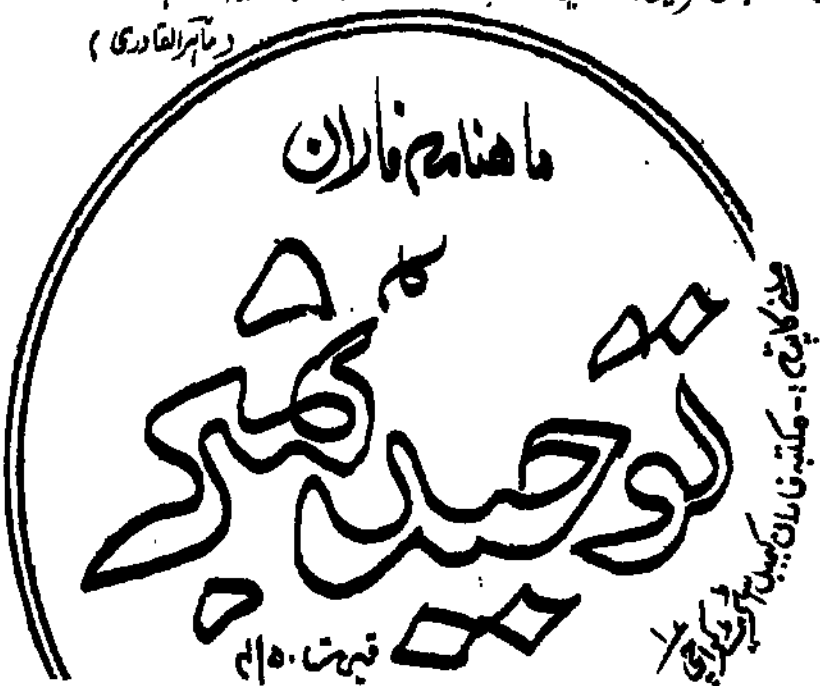 (ماہر القادری)
ماهنامہ فاران
کا
توحید نمبر
قیمت ۴/۵۰
ملنے کا پتہ :- مکتبہ فاران کیمبل اسٹریٹ کراچی ۱